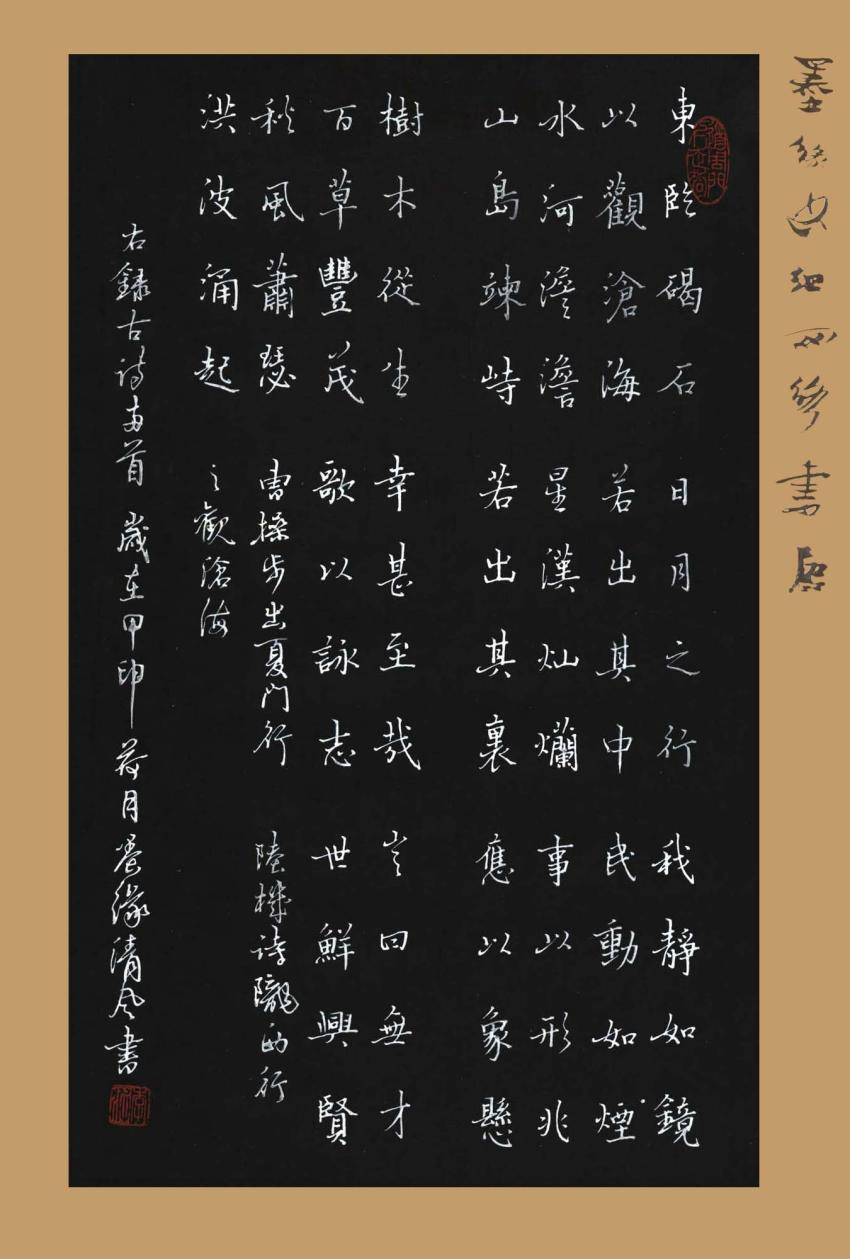 東臨碣石 日月之行 我靜如鏡
以觀滄海 若出其中 民動如煙
水河澹澹 星漢灿爛 事以形兆
山島竦峙 若出其裏 應以象懸
樹木從生 幸甚至哉 岂曰無才
百草豐茂 歌以詠志 世鮮興賢
秋風蕭瑟 曹操步出夏门行 陸機诗隴西行
洪波涌起 之觀滄海
右録古诗两首 歲在甲申 荷月墨缘清风書